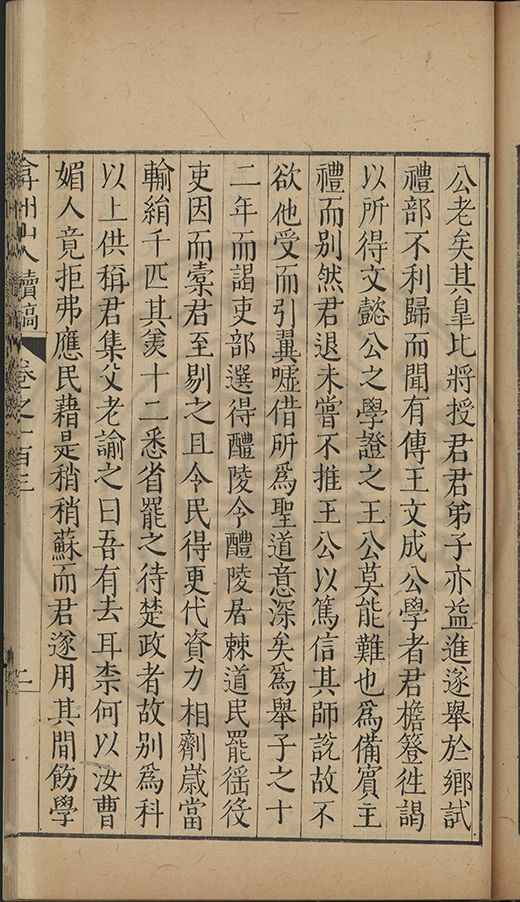 公老矣其臯比將授君君弟子亦益進遂舉於鄉試
禮部不利歸而聞有傳王文成公學者君檐簦徃謁
以所得文懿公之學證之王公莫能難也爲備賓主
禮而别然君退未嘗不推王公以篤信其師説故不
欲他受而引翼嘘借所爲聖道意深矣爲舉子之十
二年而謁吏部選得醴陵令醴陵居棘道民罷徭役
吏因而橐君至剔之且令民得更代資力相劑嵗當
輸絹千匹其羨十二悉省罷之待楚政者故别爲科
以上供稱君集父老諭之曰吾有去耳柰何以汝曹
媚人竟拒弗應民藉是稍稍蘇而君遂用其閒飭學
弇州山人續稿 卷之一百三 二